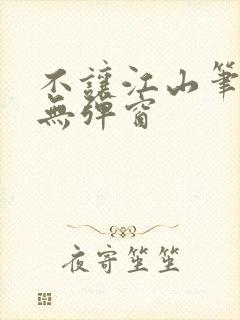 不讓江山筆
無彈窗
夜寄笙笙